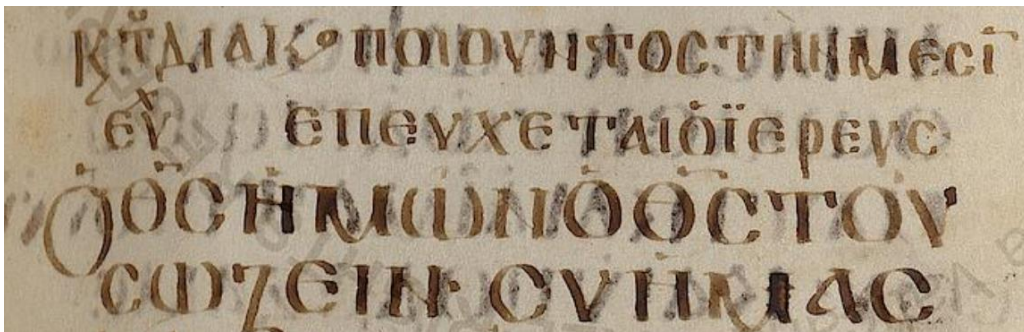 Κ͵ Τ͂ ΔΙΑΚο ΠΟΙΟΥΝΤΟϹ ΤΗΝ ΜΕϹΙ̅
ΕΥΧ ΕΠΕΥΧΕΤΑΙ Ὁ ΪΕΡΕΥϹ
Ὁ Θ̅Ϲ̅ ΗΜΩΝ Ὁ Θ̅Ϲ̅ ΤΟΥ
ϹΩΖΕΙΝ· ϹΥ ΗΜΑϹ